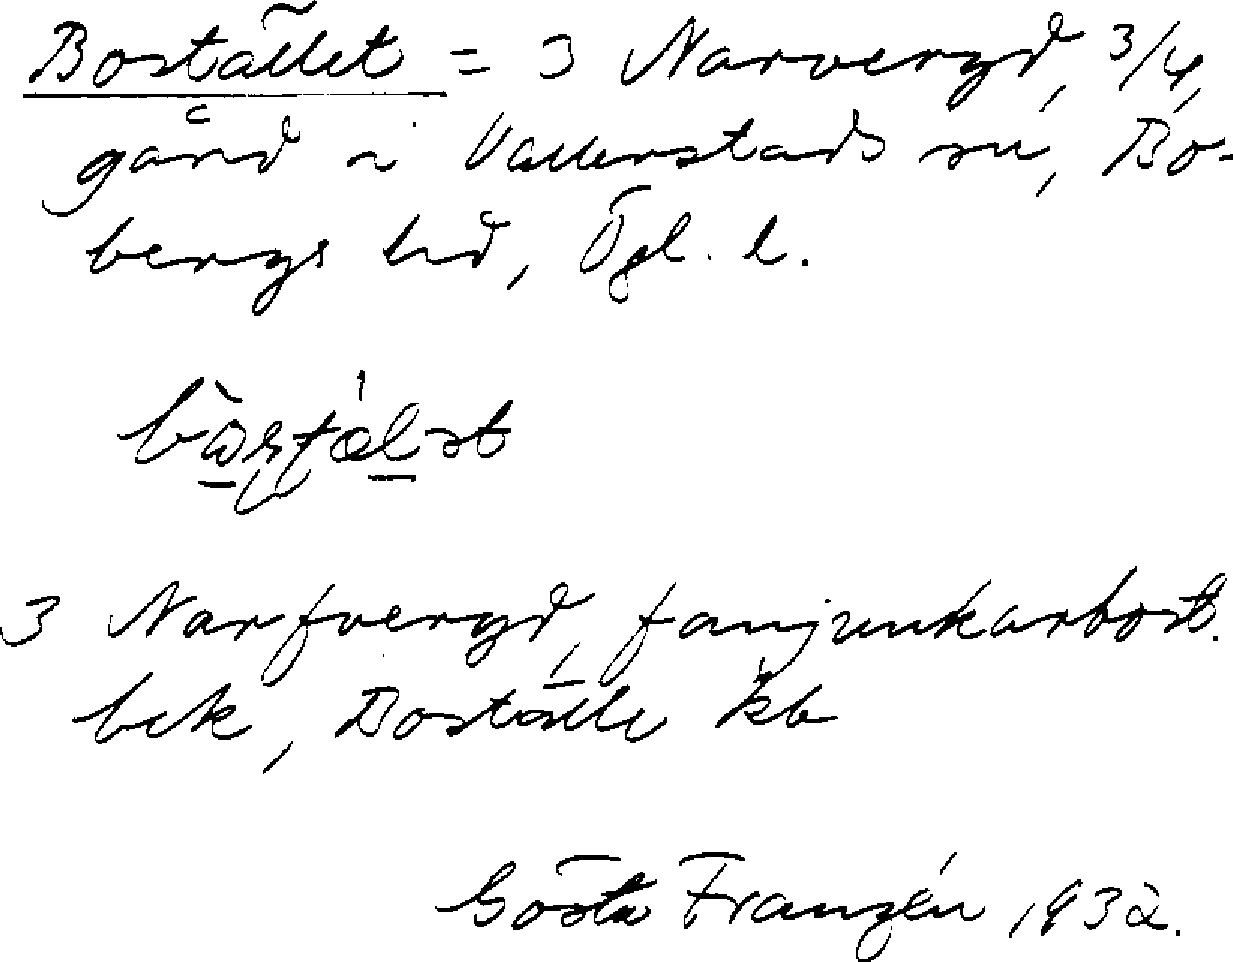 Bostället = 3 Narveryd, 3/4
gård i Vallerstads sn, Bo-
bergs hd, Ögl. l.
3 Narfveryd, fanjunkarbost.
bek, Boställe kb
Gösta Franzén 1932.